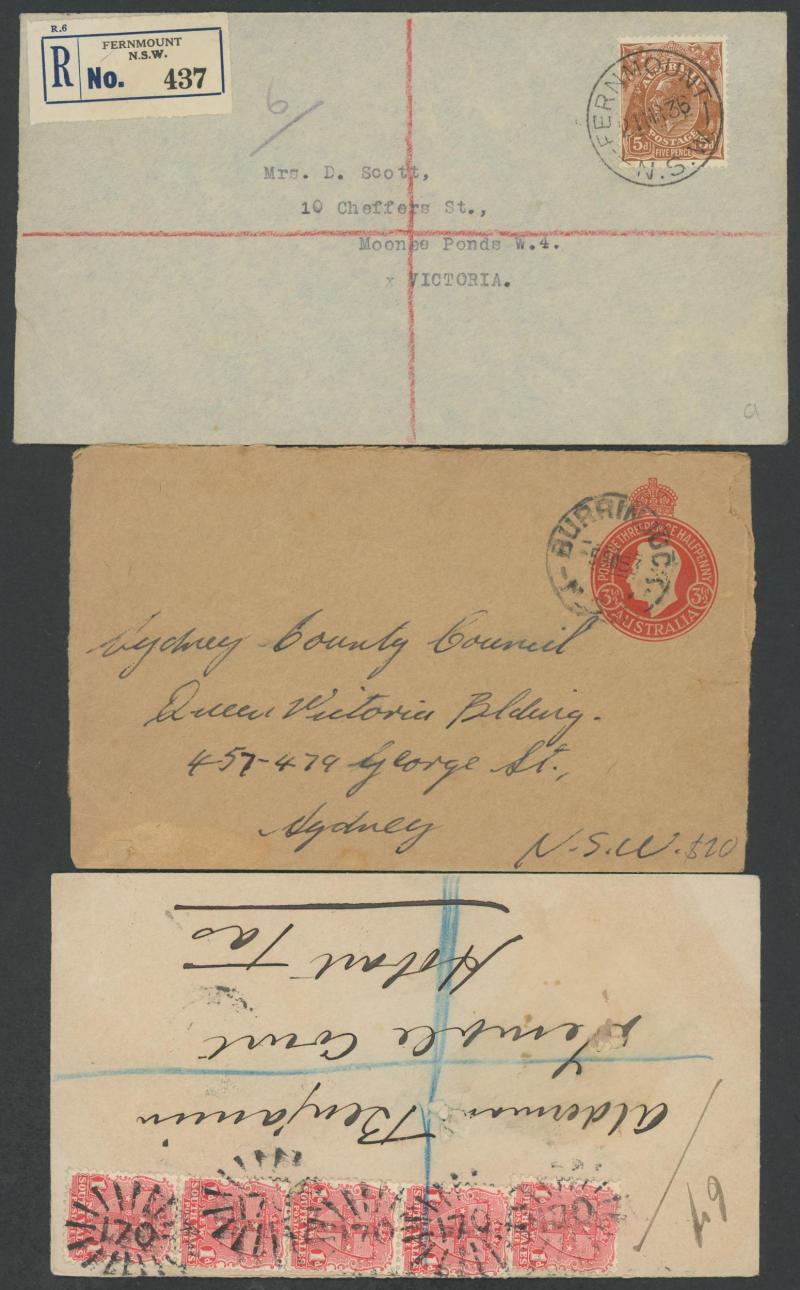 R.6
FERNMOUNT
N.S.W.
R No. 437
6/
FERNMOUNT
N.S.W
36
POSTAGE
5d FIVE PENCE 5d
Mrs. D. Scott,
10 Cheffers St.,
Moonee Ponds W.4.
x VICTORIA.
a
BURRINJUCK
POSTAGE THREE PENCE HALFPENNY
3½D 3½D
AUSTRALIA
Sydney County Council
Queen Victoria Blding.
457-479 George St.,
Sydney
N.S.W. $20
Alderman Benjamin
Court
Hobart Tas
SOUTH WALES
POSTAGE
1d
170
170
170
170
170